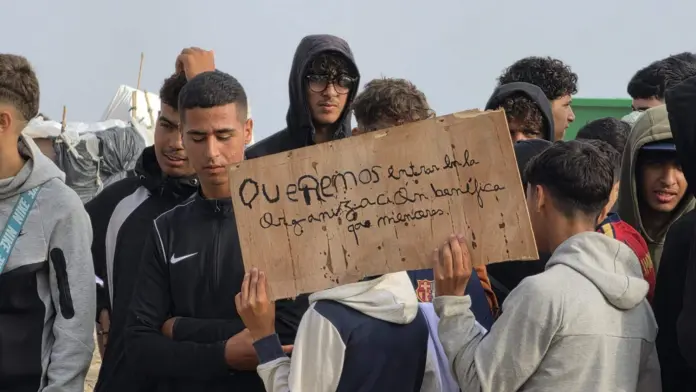 QUEREMOS entrar en la
Organización benífica
que menores.
NIKE